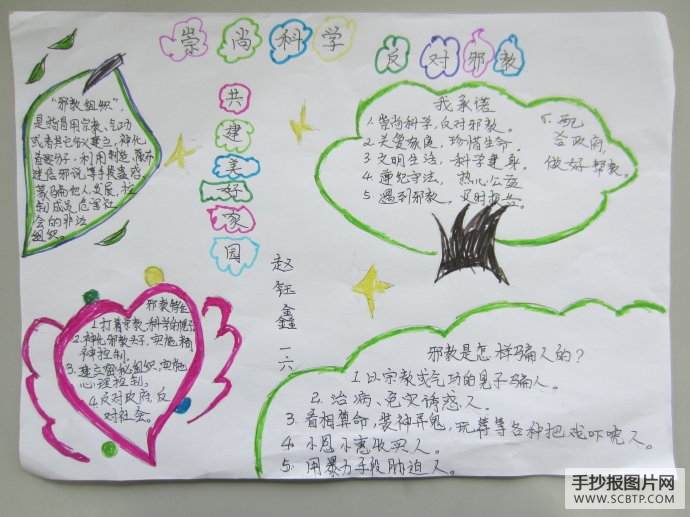 崇尚科学
反对邪教
共建美好家园
赵钰鑫 一六
"邪教组织"，
是指冒用宗教、气功
或者其它名义建立，神化
首要分子，利用制造、散布
迷信邪说等手段蛊惑、
蒙骗他人，发展，控
制成员，危害社
会的非法
组织。
我承诺
1. 崇尚科学，反对邪教。
2. 关爱家庭，珍惜生命。
3. 文明生活，科学健身。
4. 遵纪守法，热心公益
5 遇到邪教，及时报告。
6. 配
合政府，
做好帮教。
邪教特征
1. 打着宗教科学的幌子
2. 神化邪教头子，实施精
神控制。
3. 建立秘密组织，实施
心理控制。
4. 反对政府，反
对社会。
邪教是怎样骗人的？
1. 以宗教或气功的幌子骗人。
2. 治病、免灾诱惑人。
3. 看相算命，装神弄鬼，玩等等各种把戏吓唬人。
4. 小恩小惠收买人。
5. 用暴力手段胁迫人。
手抄报图片网
WWW.SCBTP.COM